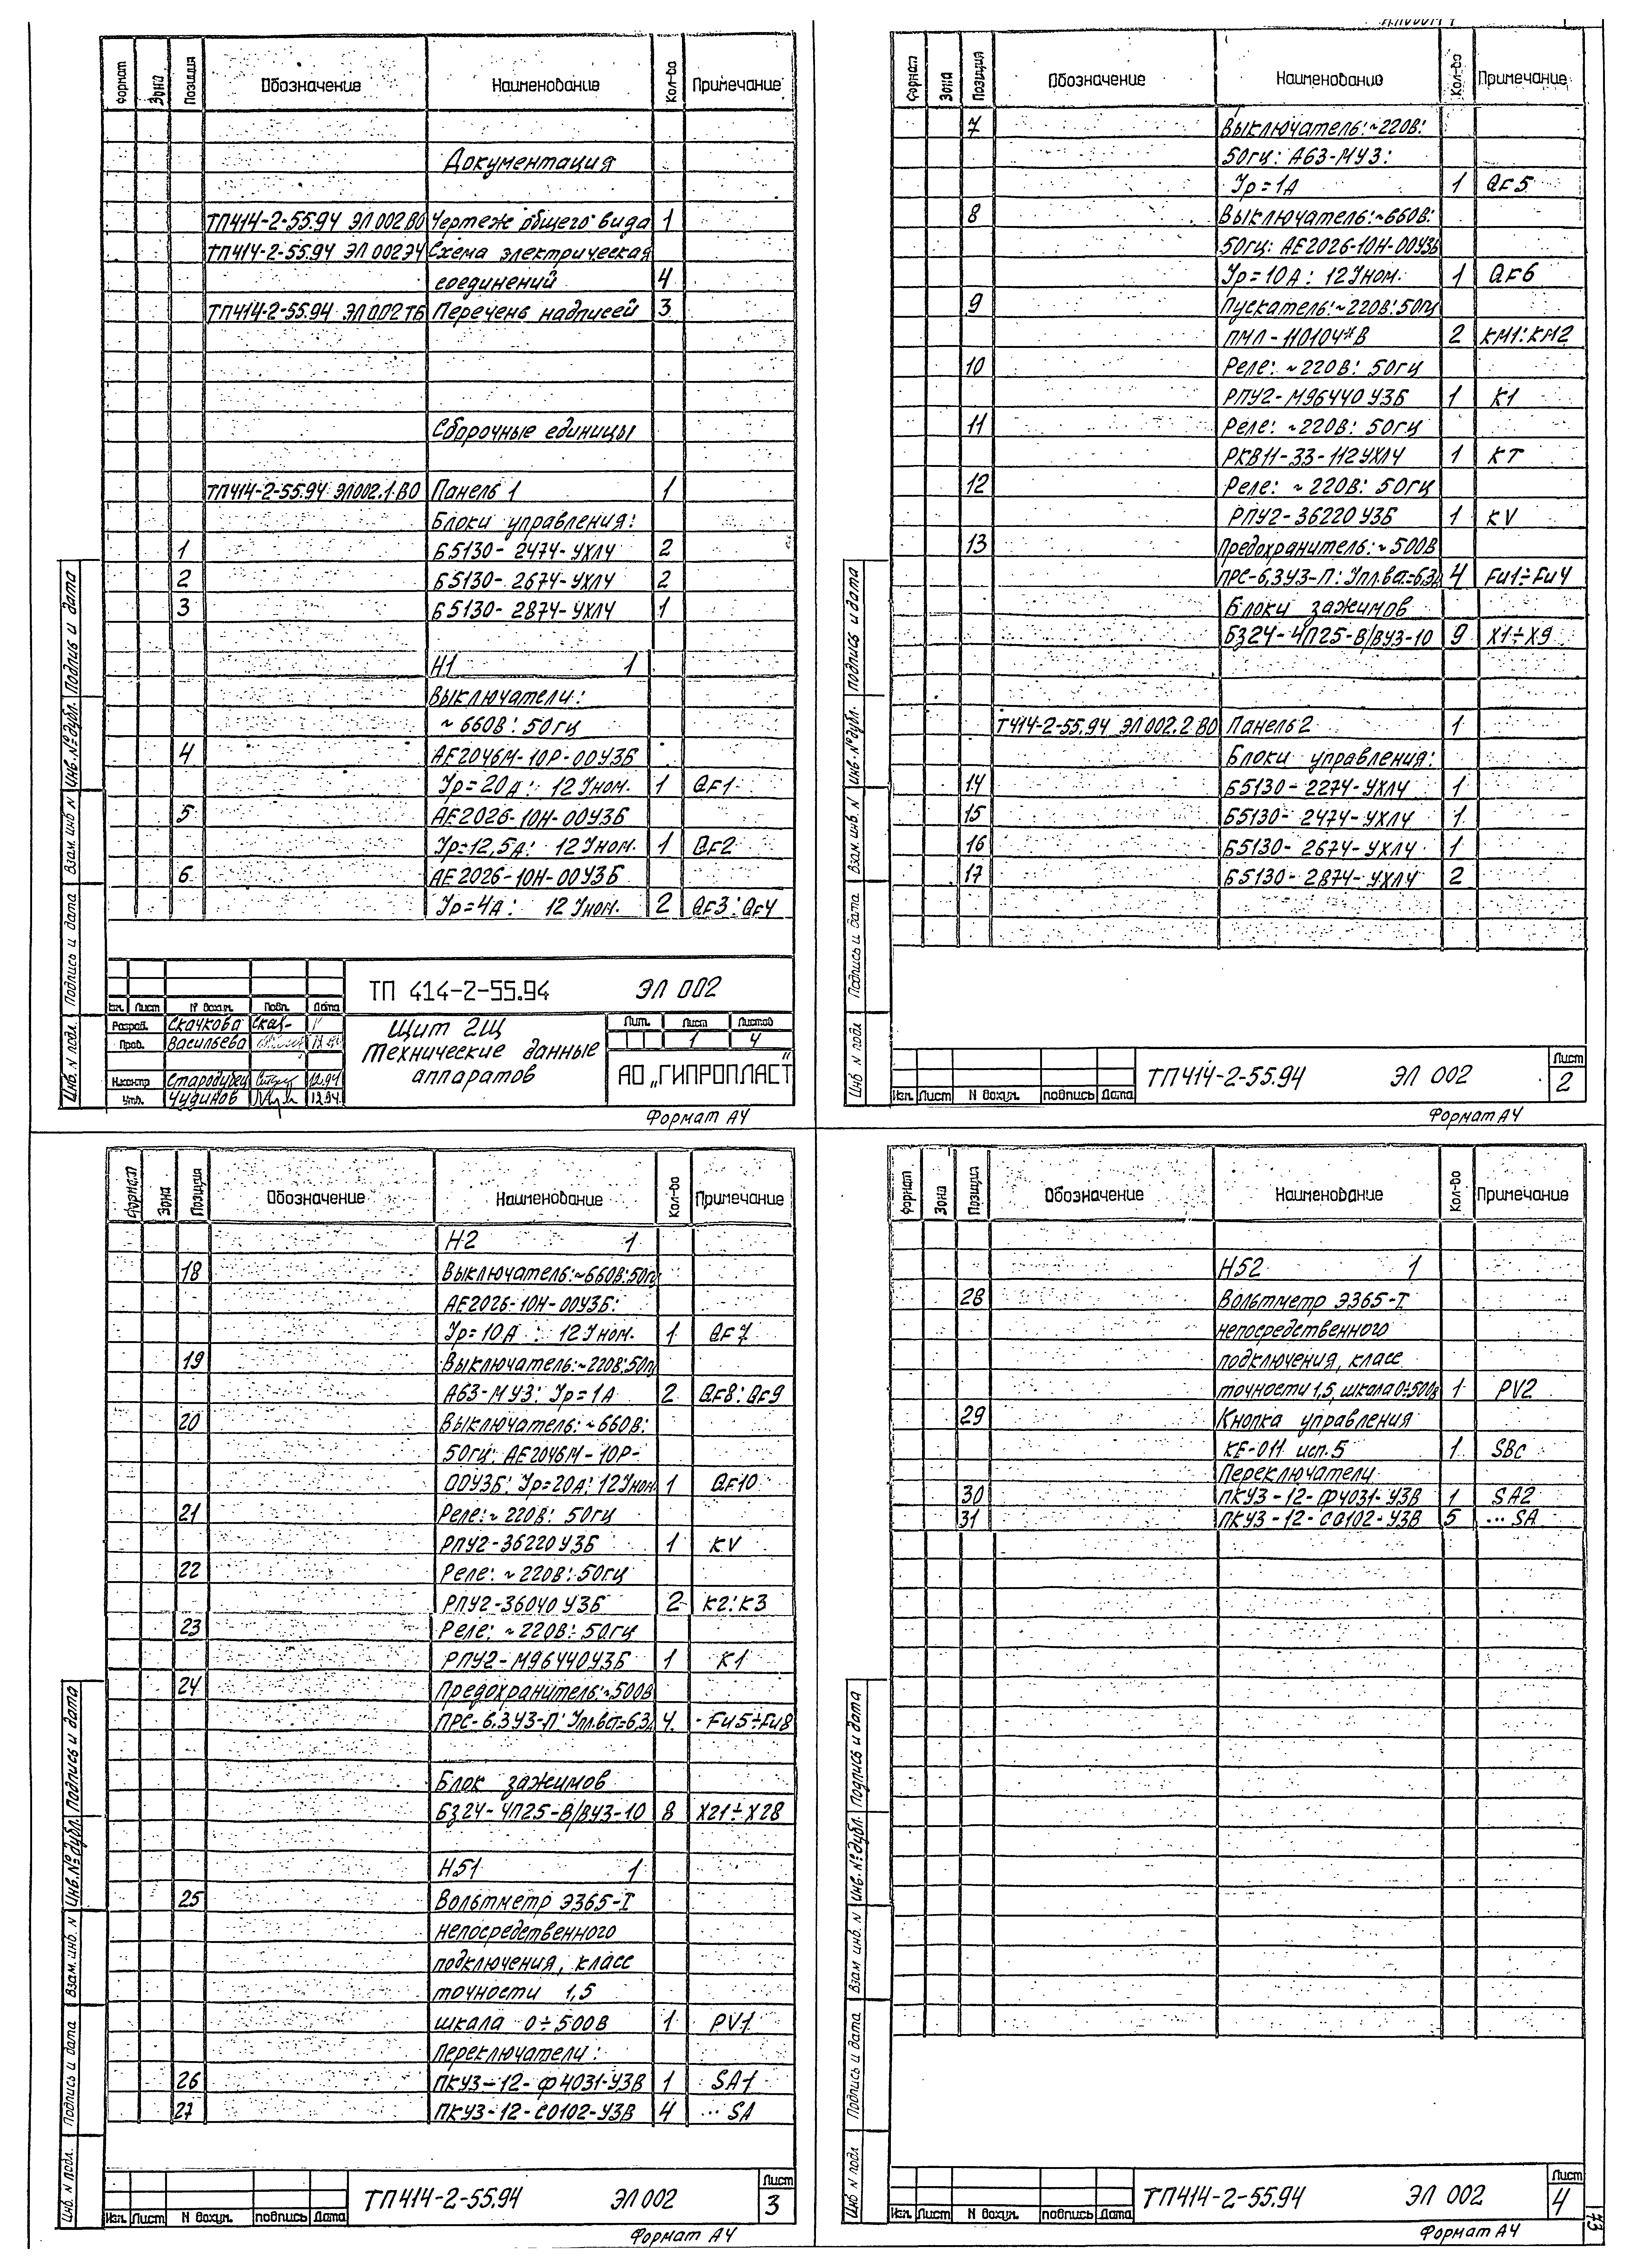 Формат Зона Позиция Обозначение Наименование Кол-во Примечание
Документация
ТП414-2-55.94 ЭЛ002ВО Чертеж общего вида 1
ТП414-2-55.94 ЭЛ002Э4 Схема электрическая
соединений 4
ТП414-2-55.94 ЭЛ002ТБ Перечень надписей 3
Сборочные единицы
ТП414-2-55.94 ЭЛ002.1.ВО Панель 1 1
Блоки управления:
1 Б5130-2474-УХЛ4 2
2 Б5130-2674-УХЛ4 2
3 Б5130-2874-УХЛ4 1
Н1 1
Выключатели:
~660В: 50гц
4 АЕ2046М-10Р-00УЗБ
Iр=20А: 12Iном. 1 QF1
5 АЕ2026-10Н-00УЗБ
Iр=12,5А: 12Iном. 1 QF2
6 АЕ2026-10Н-00УЗБ
Iр=4А: 12Iном. 2 QF3:QF4
Инв. N подл. Подпись и дата Взам. инв N Инв. № дубл. Подпись и дата
ТП 414-2-55.94 ЭЛ 002
Изм. Лист N докум. Подп. Дата
Разраб. Скачкова
Пров. Васильева
Н.контр Стародубец 12.94
Утв. Чудинов 12.94
Щит 2Щ
Технические данные
аппаратов
Лит. Лист Листов
1 4
АО „ГИПРОПЛАСТ"
Формат А4
Формат Зона Позиция Обозначение Наименование Кол-во Примечание
7 Выключатель:~220В:
50гц: А63-МУ3:
Iр=1А 1 QF5
8 Выключатель:~660В:
50гц: АЕ2026-10Н-00УЗБ
Iр=10А: 12Iном. 1 QF6
9 Пускатель:~220В:50гц
ПМЛ-110104*В 2 КМ1:КМ2
10 Реле: ~220В: 50гц
РПУ2-М96440УЗБ 1 К1
11 Реле: ~220В: 50гц
РКВ11-33-112УХЛ4 1 КТ
12 Реле: ~220В: 50гц
РПУ2-36220УЗБ 1 KV
13 Предохранитель:~500В
ПРС-6.3У3-П: Iпл.вст.=6,3А 4 Fu1÷Fu4
Блоки зажимов
БЗ24-4П25-В/ВУ3-10 9 Х1÷Х9
Т414-2-55.94 ЭЛ002.2 ВО Панель 2 1
Блоки управления:
14 Б5130-2274-УХЛ4 1
15 Б5130-2474-УХЛ4 1
16 Б5130-2674-УХЛ4 1
17 Б5130-2874-УХЛ4 2
Инв N подл Подпись и дата Взам. инв. N Инв. № дубл. Подпись и дата
Изм. Лист N докум. подпись Дата
ТП414-2-55.94 ЭЛ 002
Лист
2
Формат А4
Формат Зона Позиция Обозначение Наименование Кол-во Примечание
Н2 1
18 Выключатель:~660В:50гц
АЕ2026-10Н-00УЗБ:
Iр=10А : 12Iном. 1 QF7
19 Выключатель:~220В:50гц
А63-МУ3: Iр=1А 2 QF8:QF9
20 Выключатель:~660В:
50гц: АЕ2046М-10Р-
00УЗБ: Iр=20А: 12Iном 1 QF10
21 Реле:~220В: 50гц
РПУ2-36220УЗБ 1 KV
22 Реле: ~220В: 50гц
РПУ2-36040УЗБ 2 К2:К3
23 Реле: ~220В: 50гц
РПУ2-М96440УЗБ 1 К1
24 Предохранитель:~500В
ПРС-6.3У3-П: Iпл.вст=6,3А 4 Fu5÷Fu8
Блок зажимов
БЗ24-4П25-В/ВУ3-10 8 Х21÷Х28
Н51 1
25 Вольтметр Э365-I
непосредственного
подключения, класс
точности 1,5
шкала 0÷500В 1 PV1
Переключатели:
26 ПКУ3-12-Ф4031-У3В 1 SA1
27 ПКУ3-12-С0102-У3В 4 ...SA
Инв. N подл. Подпись и дата Взам. инв. N Инв. № дубл. Подпись и дата
Изм. Лист N докум. подпись Дата
ТП414-2-55.94 ЭЛ002
Лист
3
Формат А4
Формат Зона Позиция Обозначение Наименование Кол-во Примечание
Н52 1
28 Вольтметр Э365-I
непосредственного
подключения, класс
точности 1,5, шкала 0÷500В 1 PV2
29 Кнопка управления
КЕ-011 исп.5 1 SBC
Переключатели
30 ПКУ3-12-Ф4031-У3В 1 SA2
31 ПКУ3-12-С0102-У3В 5 ...SA
Инв N подл Подпись и дата Взам инв. N Инв. № дубл. Подпись и дата
Изм. Лист N докум. подпись Дата
ТП414-2-55.94 ЭЛ 002
Лист
4
73
Формат А4